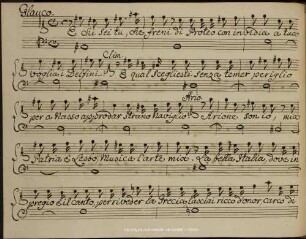 Glauco
E chi sei tu, che freni di Proteo con invidia a tua
Clin.
voglia i Delfini. E qual scegliesti senza temer periglio
Ario
per a Nasso approdar strano Naviglio Arione son io, mia
Patria è Lesbo, Musica l'arte mia. La bella Italia dove in
pregio è il canto, per riveder la Grecia lasciai ricco d'onor, carco di